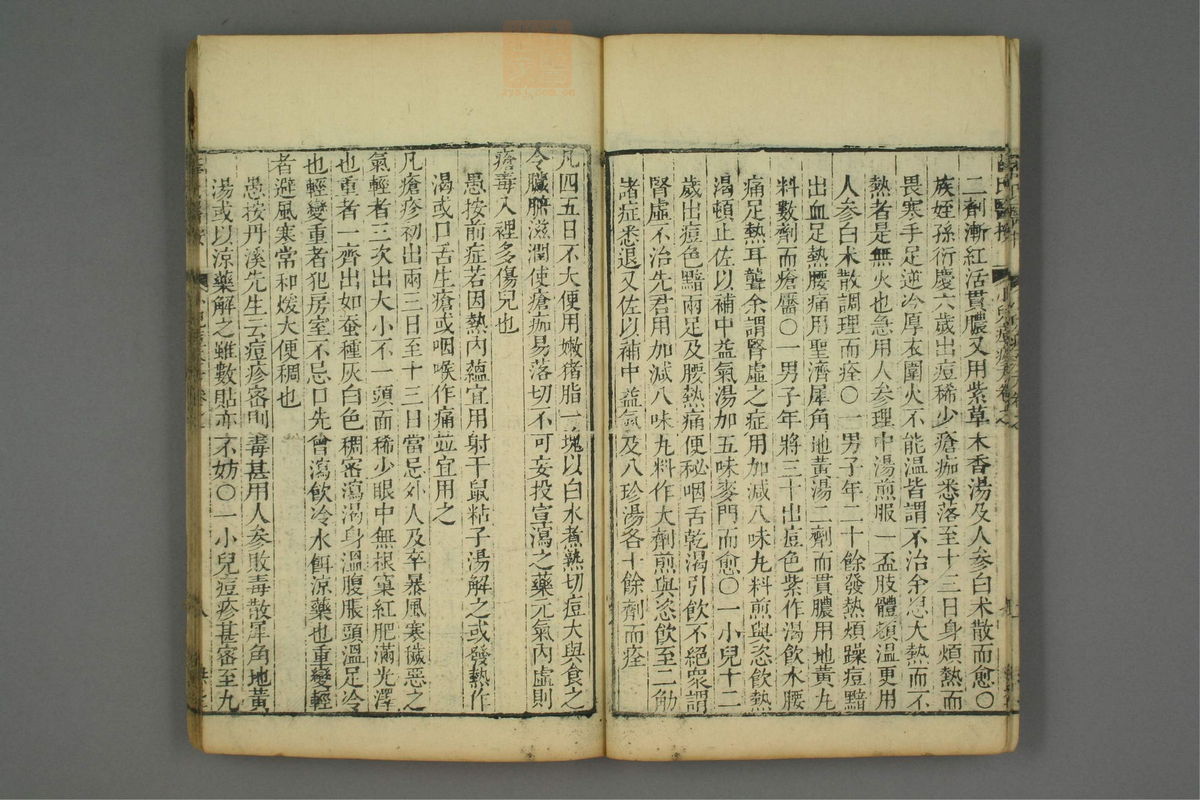 二劑漸紅活貫膿又用紫草木香湯及人參白朮散而愈〇
族姪孫衍慶六歲出痘稀少瘡痂悉落至十三日身煩熱而
畏寒手足逆冷厚衣圍火不能溫皆謂不治余思大熱而不
熱者是無火也急用人參理中湯煎服一盃肢體頓溫更用
人參白朮散調理而痊〇一男子年二十餘發熱煩躁痘黯
出血足熱腰痛用聖濟犀角地黃湯二劑而貫膿用地黃丸
料數劑而瘡靨〇一男子年將三十出痘色紫作渴飲水腰
痛足熱耳聾余謂腎虛之症用加減八味丸料煎與恣飲熱
渴頓止佐以補中益氣湯加五味麥門而愈〇一小兒十二
歲出痘色黯兩足及腰熱痛便秘咽舌乾渴引飲不絕衆謂
腎虛不治先君用加減八味丸料作大劑煎與恣飲至二觔
諸症悉退又佐以補中益氣及八珍湯各十餘劑而痊
凡四五日不大便用嫩猪脂一塊以白水煮熟切痘大與食之
令臟腑滋潤使瘡痂易落切不可妄投宣瀉之藥元氣內虛則
瘡毒入裡多傷兒也
愚按前症若因熱內蘊宜用射干鼠粘子湯解之或發熱作
渴或口舌生瘡或咽喉作痛並宜用之
凡瘡疹初出兩三日至十三日當忌外人及卒暴風寒穢惡之
氣輕者三次出大小不一頭面稀少眼中無根窠紅肥滿光澤
也重者一齊出如蚕種灰白色稠密瀉渴身溫腹脹頭溫足冷
也輕變重者犯房室不忌口先曾瀉飲冷水餌涼藥也重變輕
者避風寒常和煖大便稠也
愚按丹溪先生云痘疹密則毒甚用人參敗毒散犀角地黃
湯或以涼藥解之雖數貼亦不妨〇一小兒痘疹甚密至九